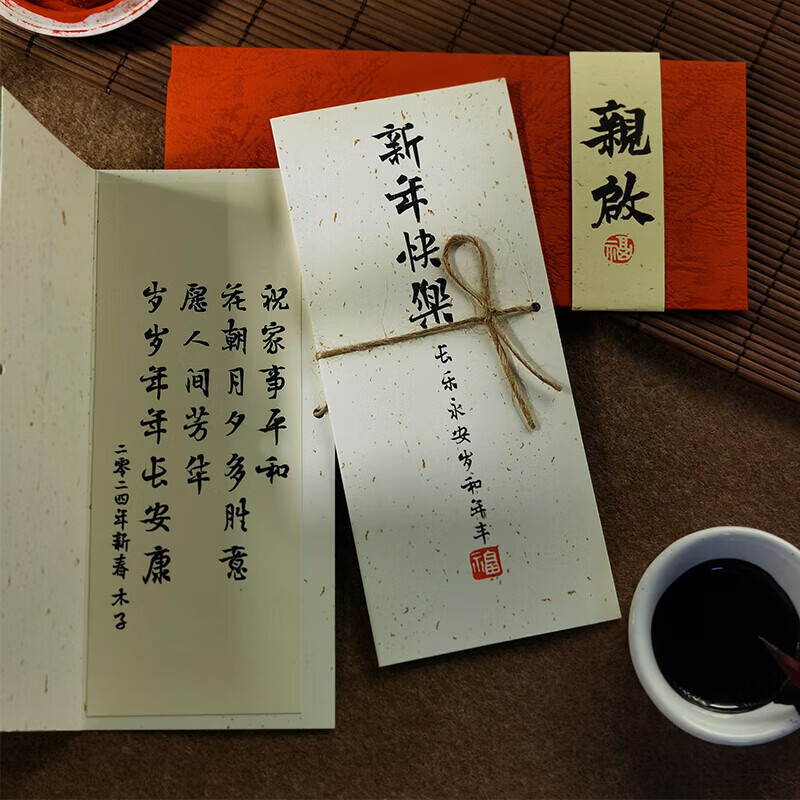 祝家事平和
花朝月夕多胜意
愿人间芳华
岁岁年年长安康
二零二四年新春 木子
新年快樂
长乐永安岁和年丰
福
親啟
福